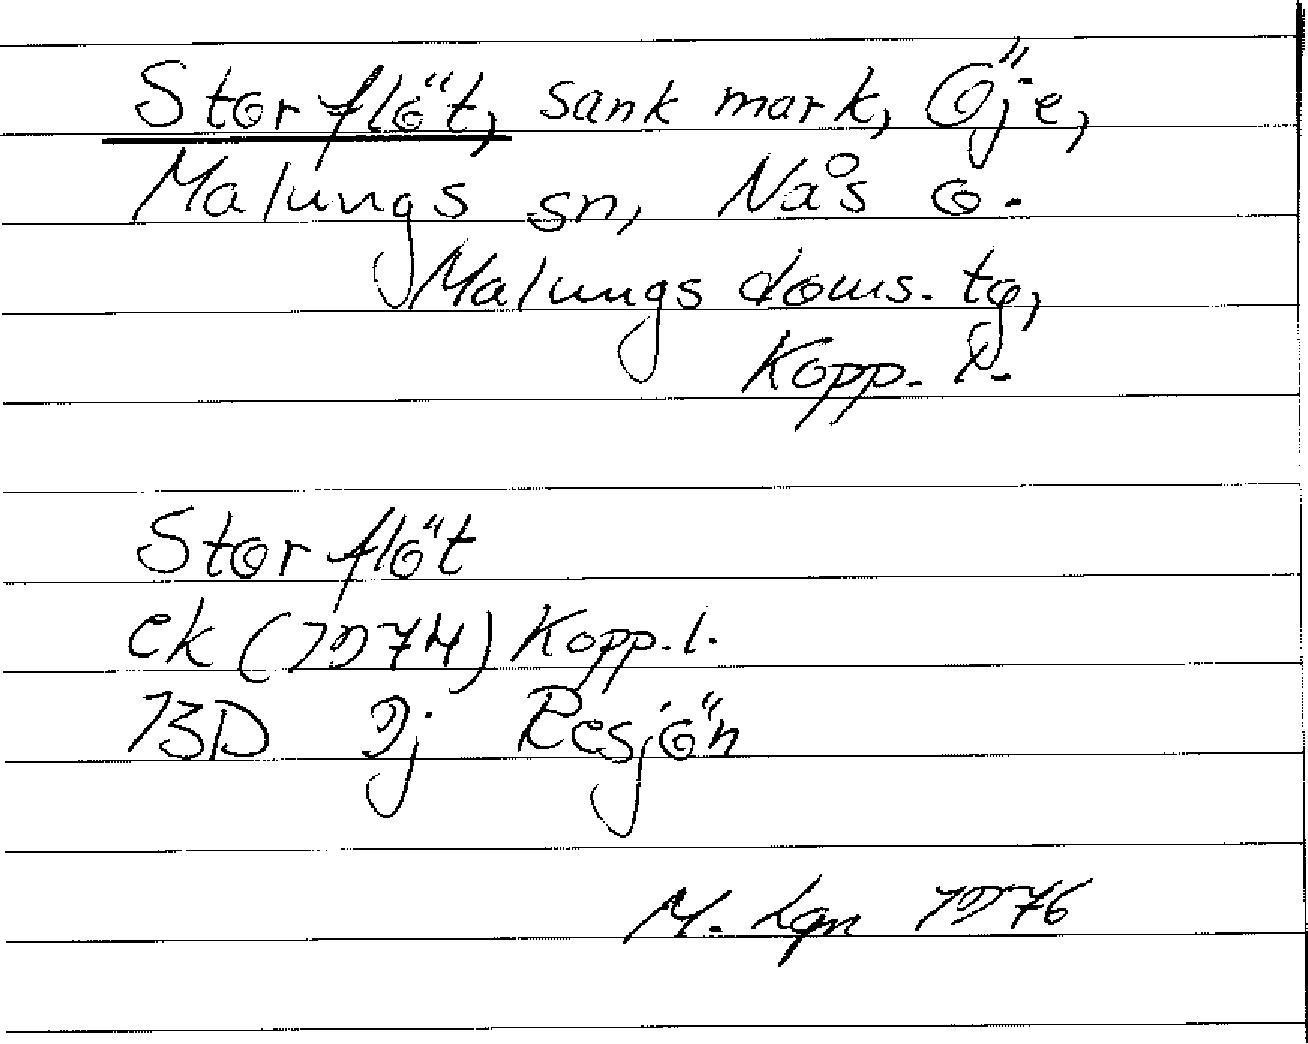 Storflöt, sank mark, Öje,
Malungs sn, Nås o.
Malungs doms. tg,
Kopp. l.
Storflöt
ek (1974) Kopp. l.
13D 9j Resjön
M. Lgn 1976